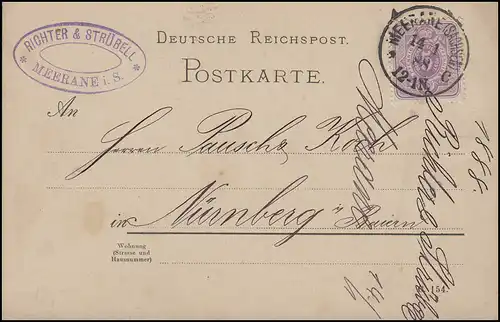 RICHTER & STRÜBELL
MEERANE i. S.
DEUTSCHE REICHSPOST.
POSTKARTE.
MEERANE (SACHSEN)
14 1
88
12-1N.
C
An
Herren Pauschr Koch
in Nürnberg
Baiern
Wohnung
(Strasse und
Hausnummer)
154.
1888.
Richter & Strübell
Meerane
14/1